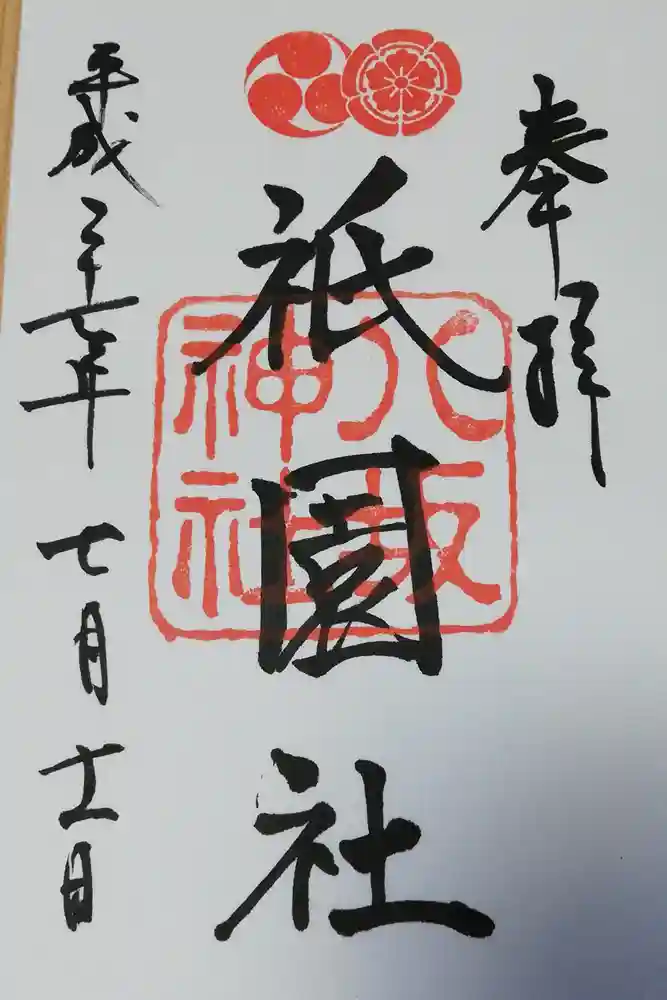 奉拝
祇園社
八坂
神社
平成二十七年七月十一日